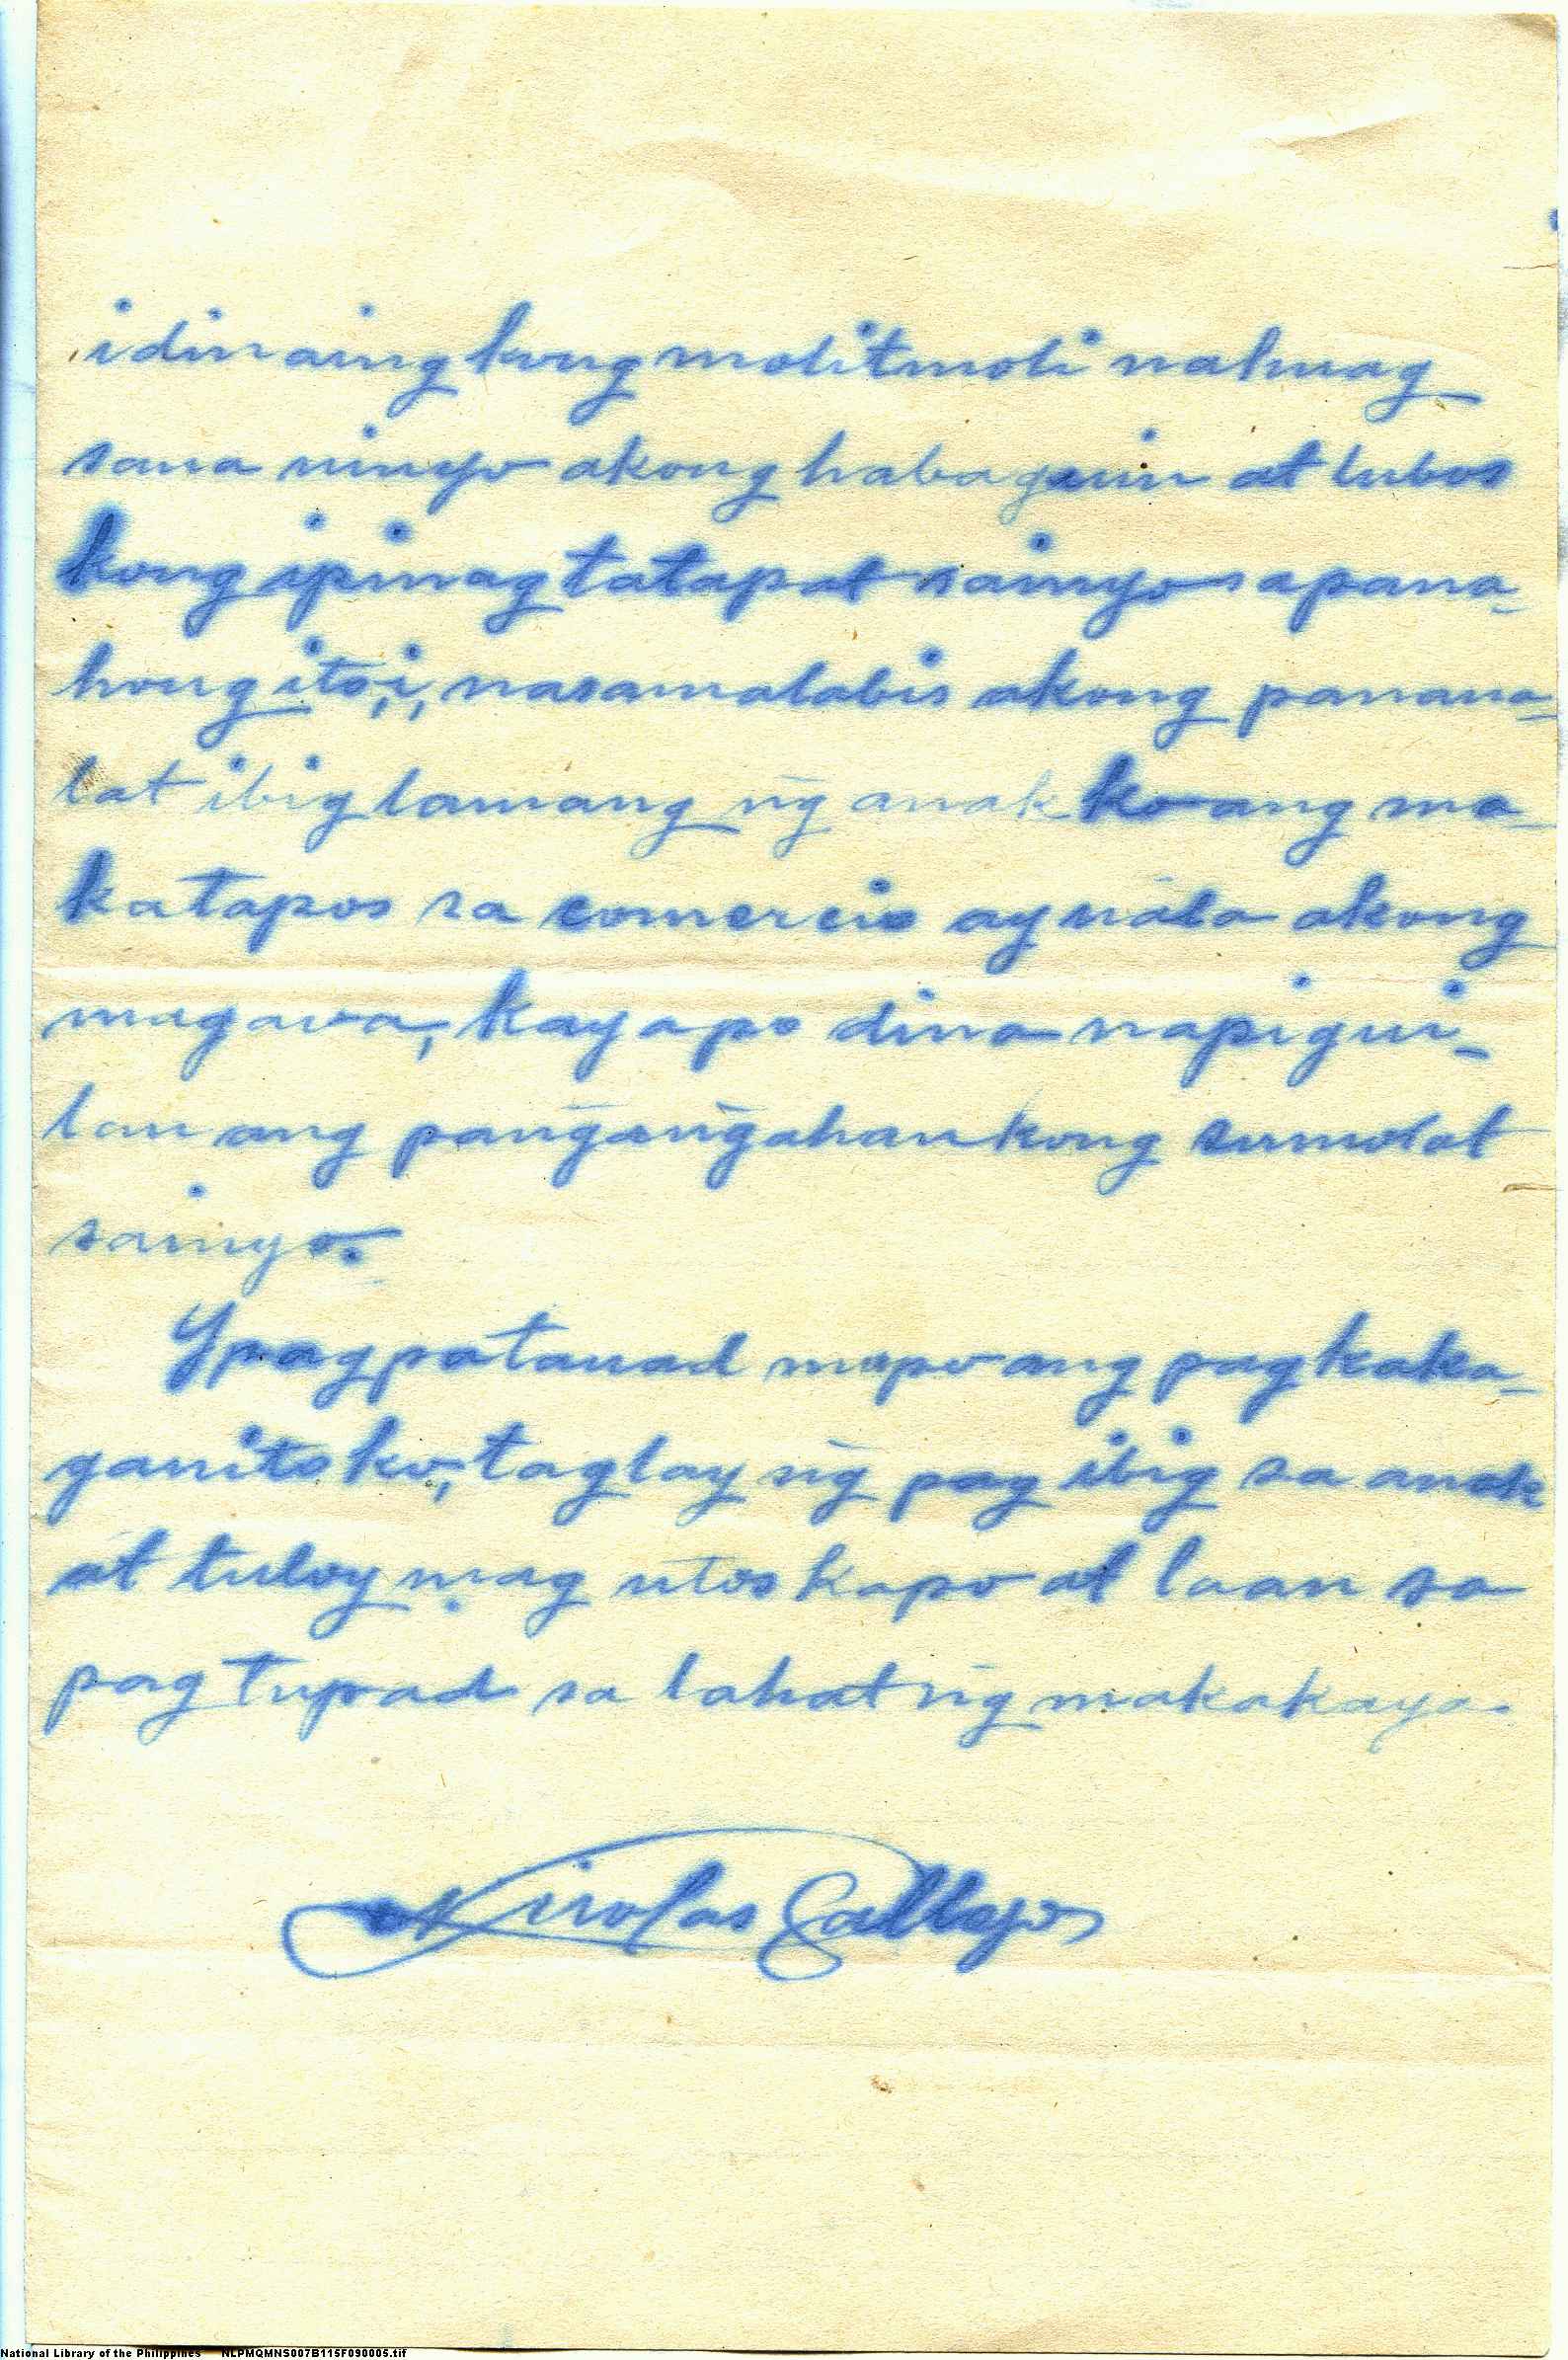 idinaing kung molitmoli nahuag
sana ninyo akong habaguin at lubos
kong ipinagtatapat sainyo sapana-
hong ito,i, nasamalabis akong panana-
lat ibig lamang ng̃ anak ko ang ma-
katapos sa comercio ay uala akong
magawa, kaya po dina napigui-
lan ang pang̃ang̃ahan kong sumolat
sainyo.
Ypagpatauad mopo ang pagkaka-
ganito ko, taglay ng̃ pag ibig sa anak
at tuloy mag utos kapo at laan sa
pag tupad sa lahat ng̃ makakaya.
Nicolas Gallegos
National Library of the Philippines NLPMQMNS007B115F090005.tif